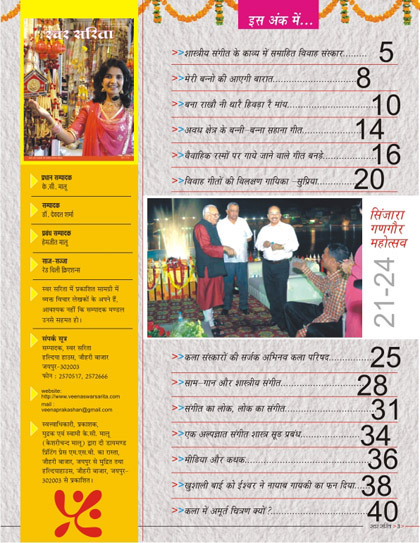 स्वर सरिता
प्रधान सम्पादक
के.सी. मालू
सम्पादक
डॉ. देवदत्त शर्मा
प्रबंध सम्पादक
हेमजीत मालू
साज-सज्जा
रेड चिली क्रिएशन्स
स्वर सरिता में प्रकाशित सामग्री में
व्यक्त विचार लेखकों के अपने हैं,
आवश्यक नहीं कि सम्पादक मण्डल
उनसे सहमत हो।
संपर्क सूत्र
सम्पादक, स्वर सरिता
हल्दिया हाउस, जौहरी बाजार
जयपुर-302003
फोन : 2570517, 2572666
website:
http://www.veenaswarsarita.com
mail :
veenaprakashan@gmail.com
स्वत्वाधिकारी, प्रकाशक,
मुद्रक एवं स्वामी के.सी. मालू
(केशरीचन्द मालू) द्वारा दी डायमण्ड
प्रिंटिंग प्रेस एम.एस.बी. का रास्ता,
जौहरी बाजार, जयपुर से मुद्रित तथा
हल्दियाहाउस, जौहरी बाजार, जयपुर-
302003 से प्रकाशित।
इस अंक में...
>>शास्त्रीय संगीत के काव्य में समाहित विवाह संस्कार........5
>>मेरी बन्नो की आएगी बारात...........................8
>>बना राखौ नी थारै हिवड़ा रै मांय......................10
>>अवध क्षेत्र के बन्नी-बन्ना सहाना गीत..................14
>>वैवाहिक रस्मों पर गाये जाने वाले गीत बनड़े............16
>>विवाह गीतों की विलक्षण गायिका -सुप्रिया..............20
सिंजारा
गणगौर
महोत्सव
21-24
>>कला संस्कारों की सर्जक अभिनव कला परिषद...........25
>>साम-गान और शास्त्रीय संगीत.......................28
>>संगीत का लोक, लोक का संगीत.....................31
>>एक अल्पज्ञात संगीत शास्त्र सूड प्रबंध.................34
>>मीडिया और कथक...............................36
>>खुशाली बाई को ईश्वर ने नायाब गायकी का फन दिया......38
>>कला में अमूर्त चित्रण क्यों?.........................40
स्वर सरिता > 3 >